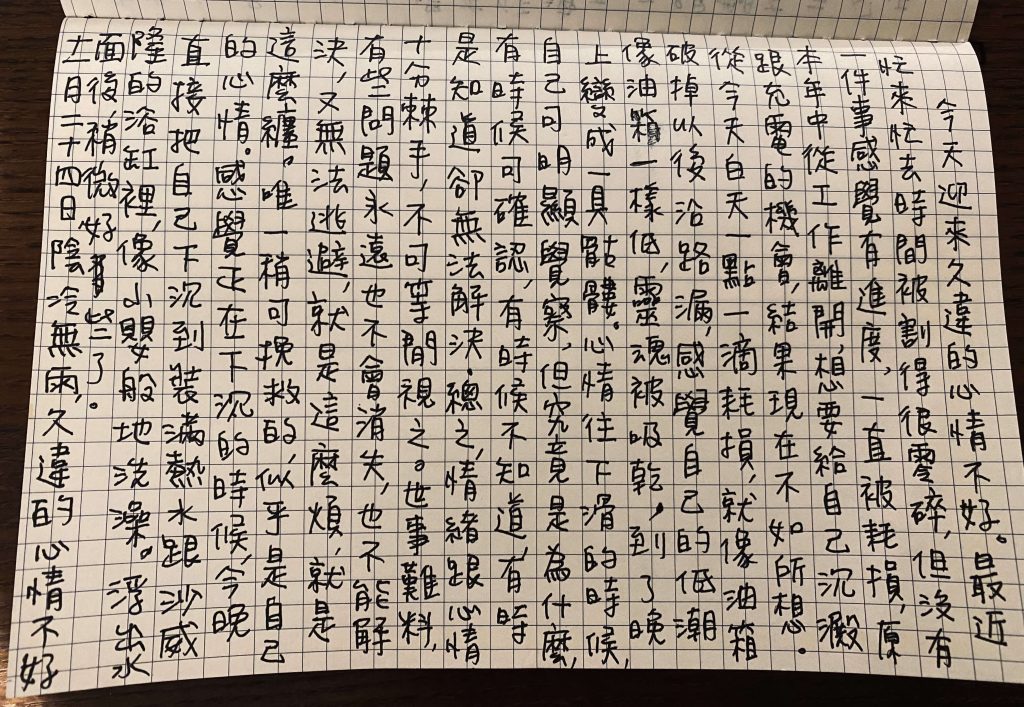 今天迎來久違的心情不好。最近
忙來忙去時間被割得很零碎,但沒有
一件事感覺有進度,一直被耗損,原
本年中從工作離開,想要給自己沉澱
跟充電的機會,結果現在不如所想。
從今天白天一點一滴耗損,就像油箱
破掉以後沿路漏,感覺自己的低潮
像油箱一樣低,靈魂被吸乾,到了晚
上變成一具骷髏。心情往下滑的時候,
自己可明顯覺察,但究竟是為什麼,
有時候可確認,有時候不知道,有時
是知道卻無法解決。總之,情緒跟心情
十分棘手,不可等閒視之。世事難料,
有些問題永遠也不會消失,也不能解
決,又無法逃避,就是這麼煩,就是
這麼纏。唯一稍可挽救的,似乎是自己
的心情。感覺正在下沉的時候,今晚
直接把自己下沉到裝滿熱水跟沙威
隆的浴缸裡,像小嬰般地洗澡。浮出水
面後,稍微好有些了。
十一月二十四日陰冷無雨,久違的心情不好